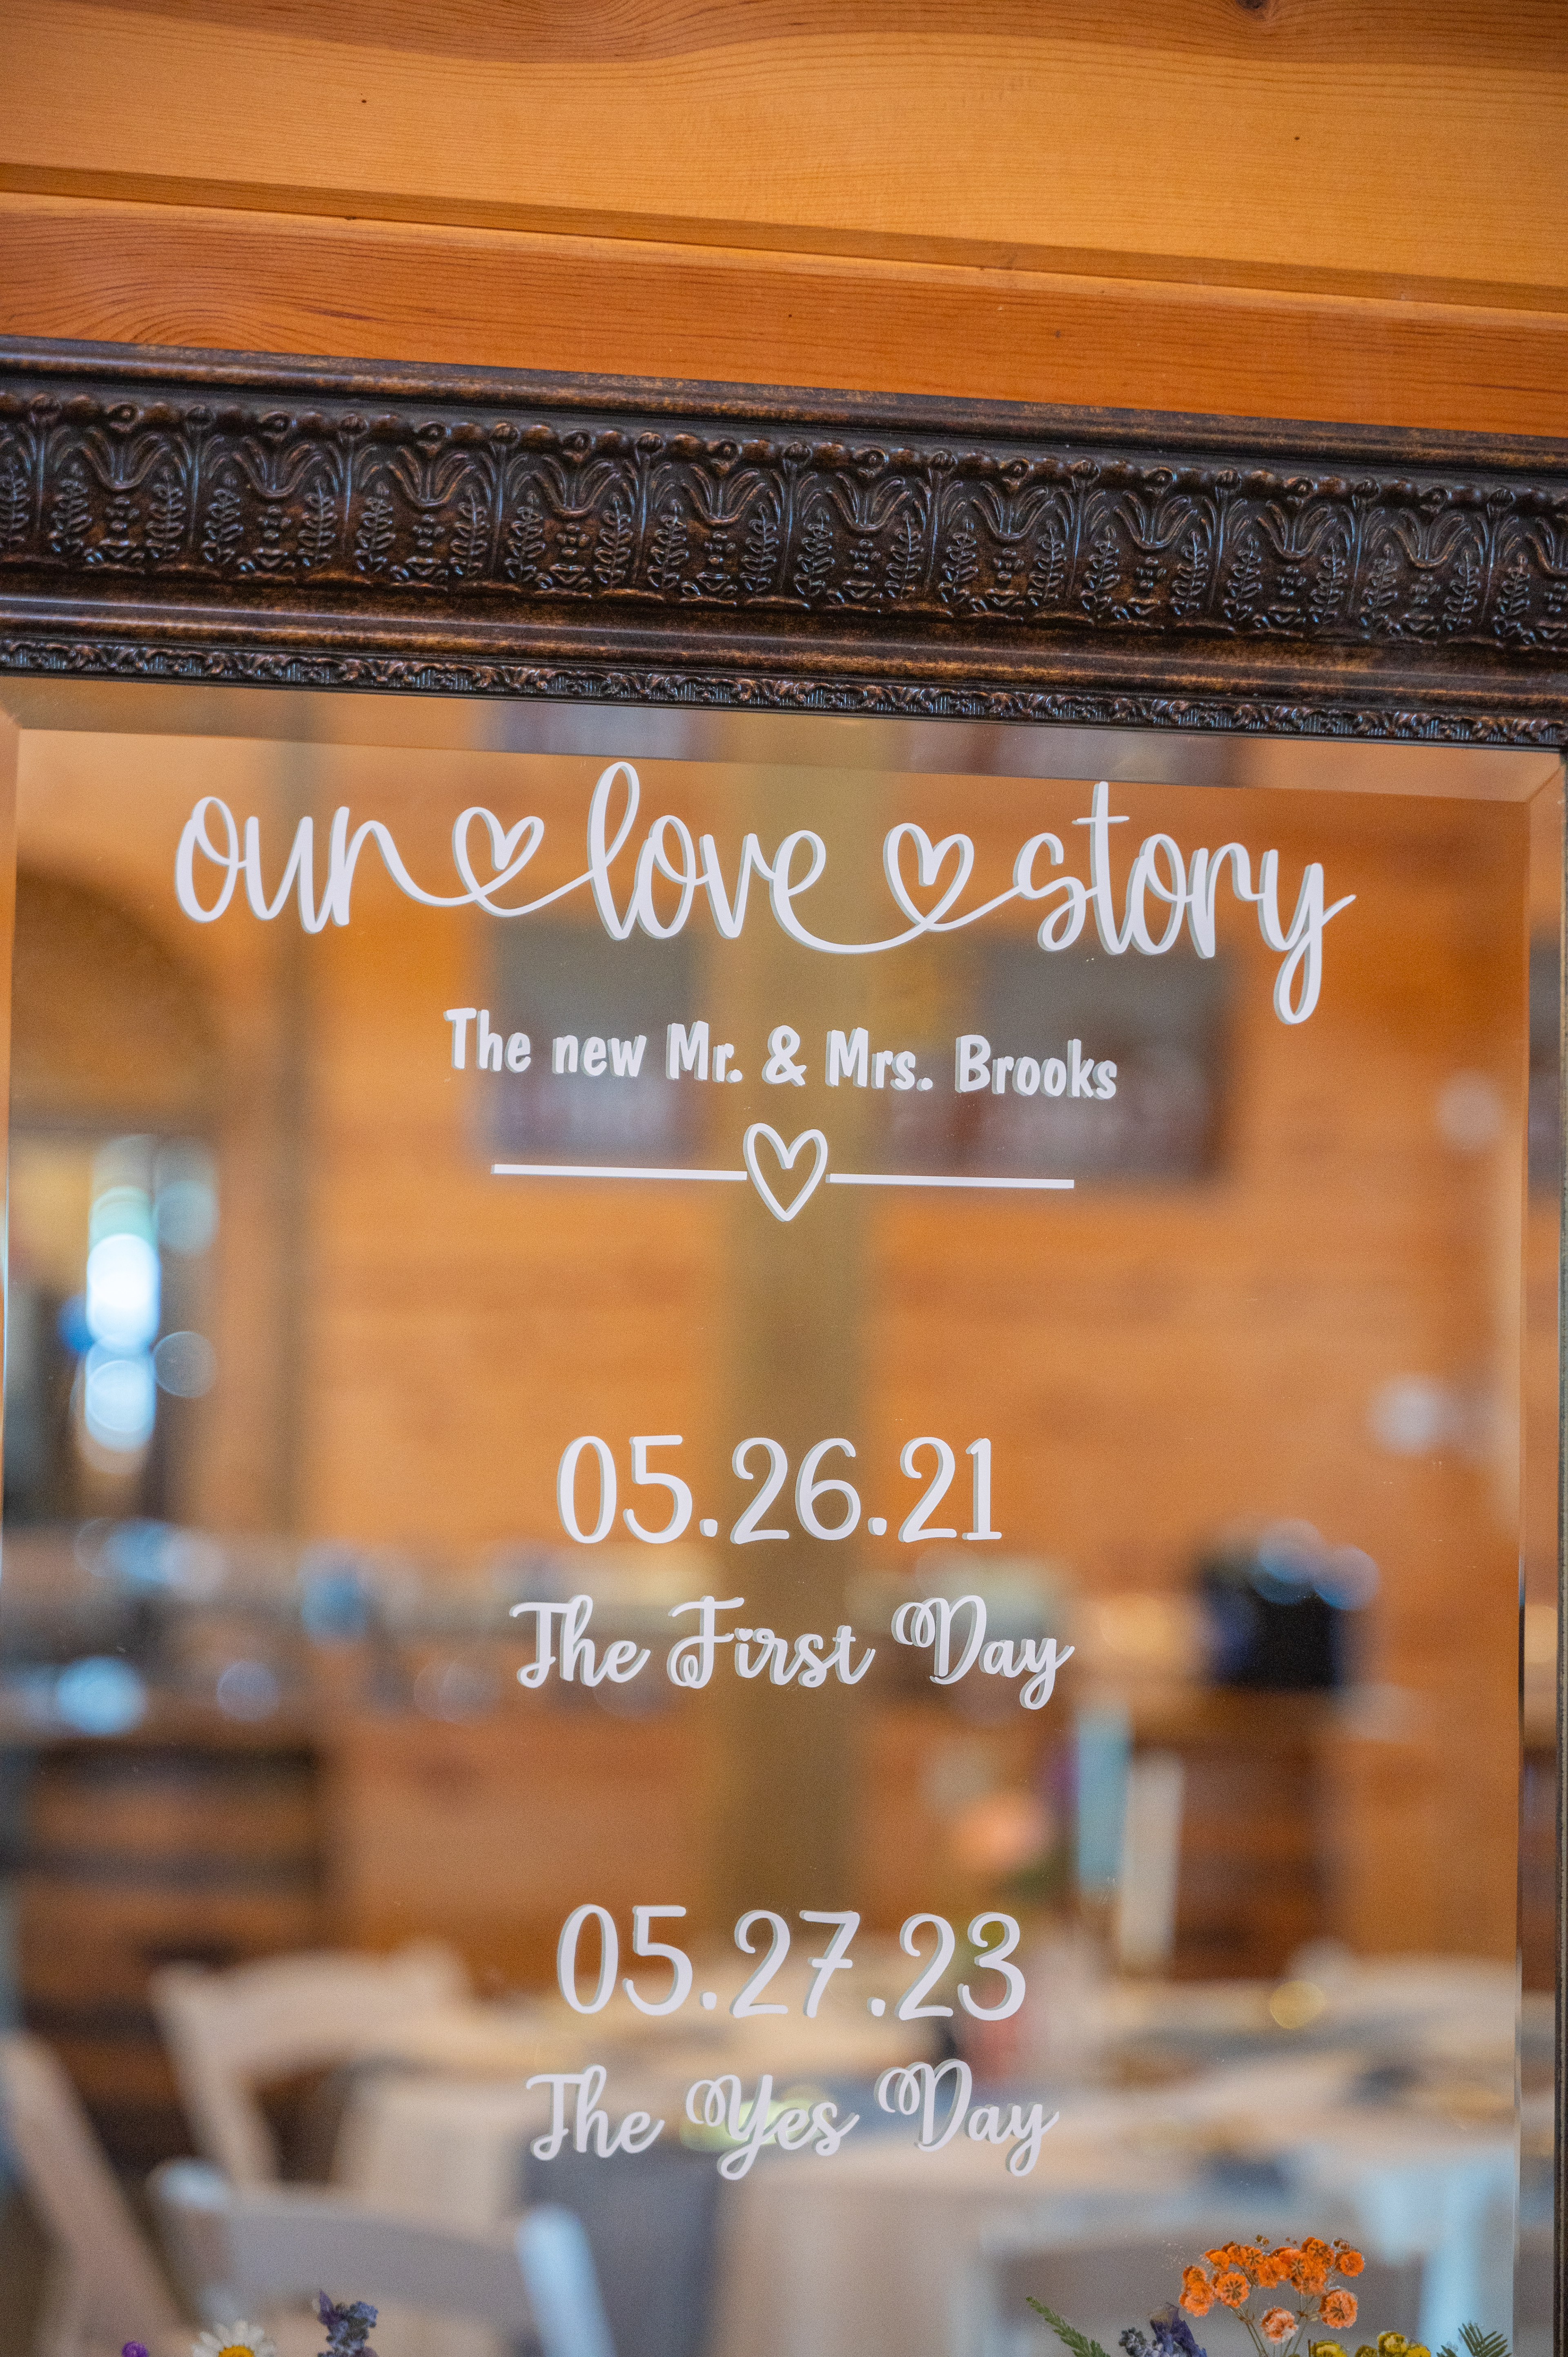 our love story
The new Mr. & Mrs. Brooks
05.26.21
The First Day
05.27.23
The Yes Day